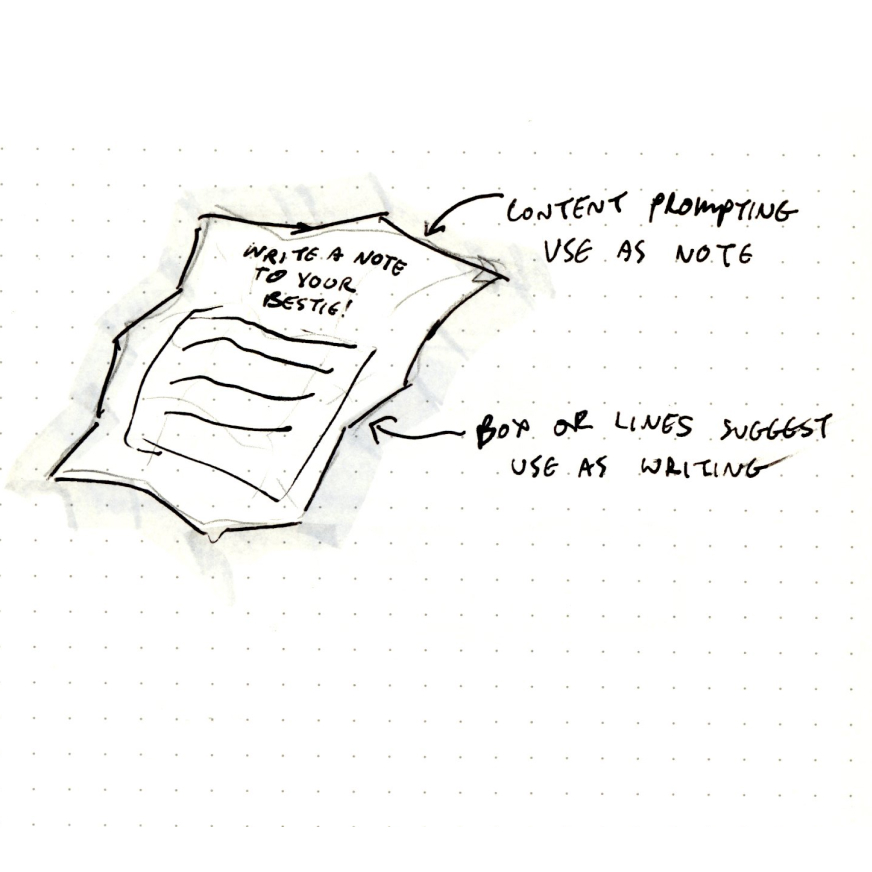 WRITE A NOTE
TO YOUR
BESTIE!
CONTENT PROMPTING
USE AS NOTE
BOX OR LINES SUGGEST
USE AS WRITING